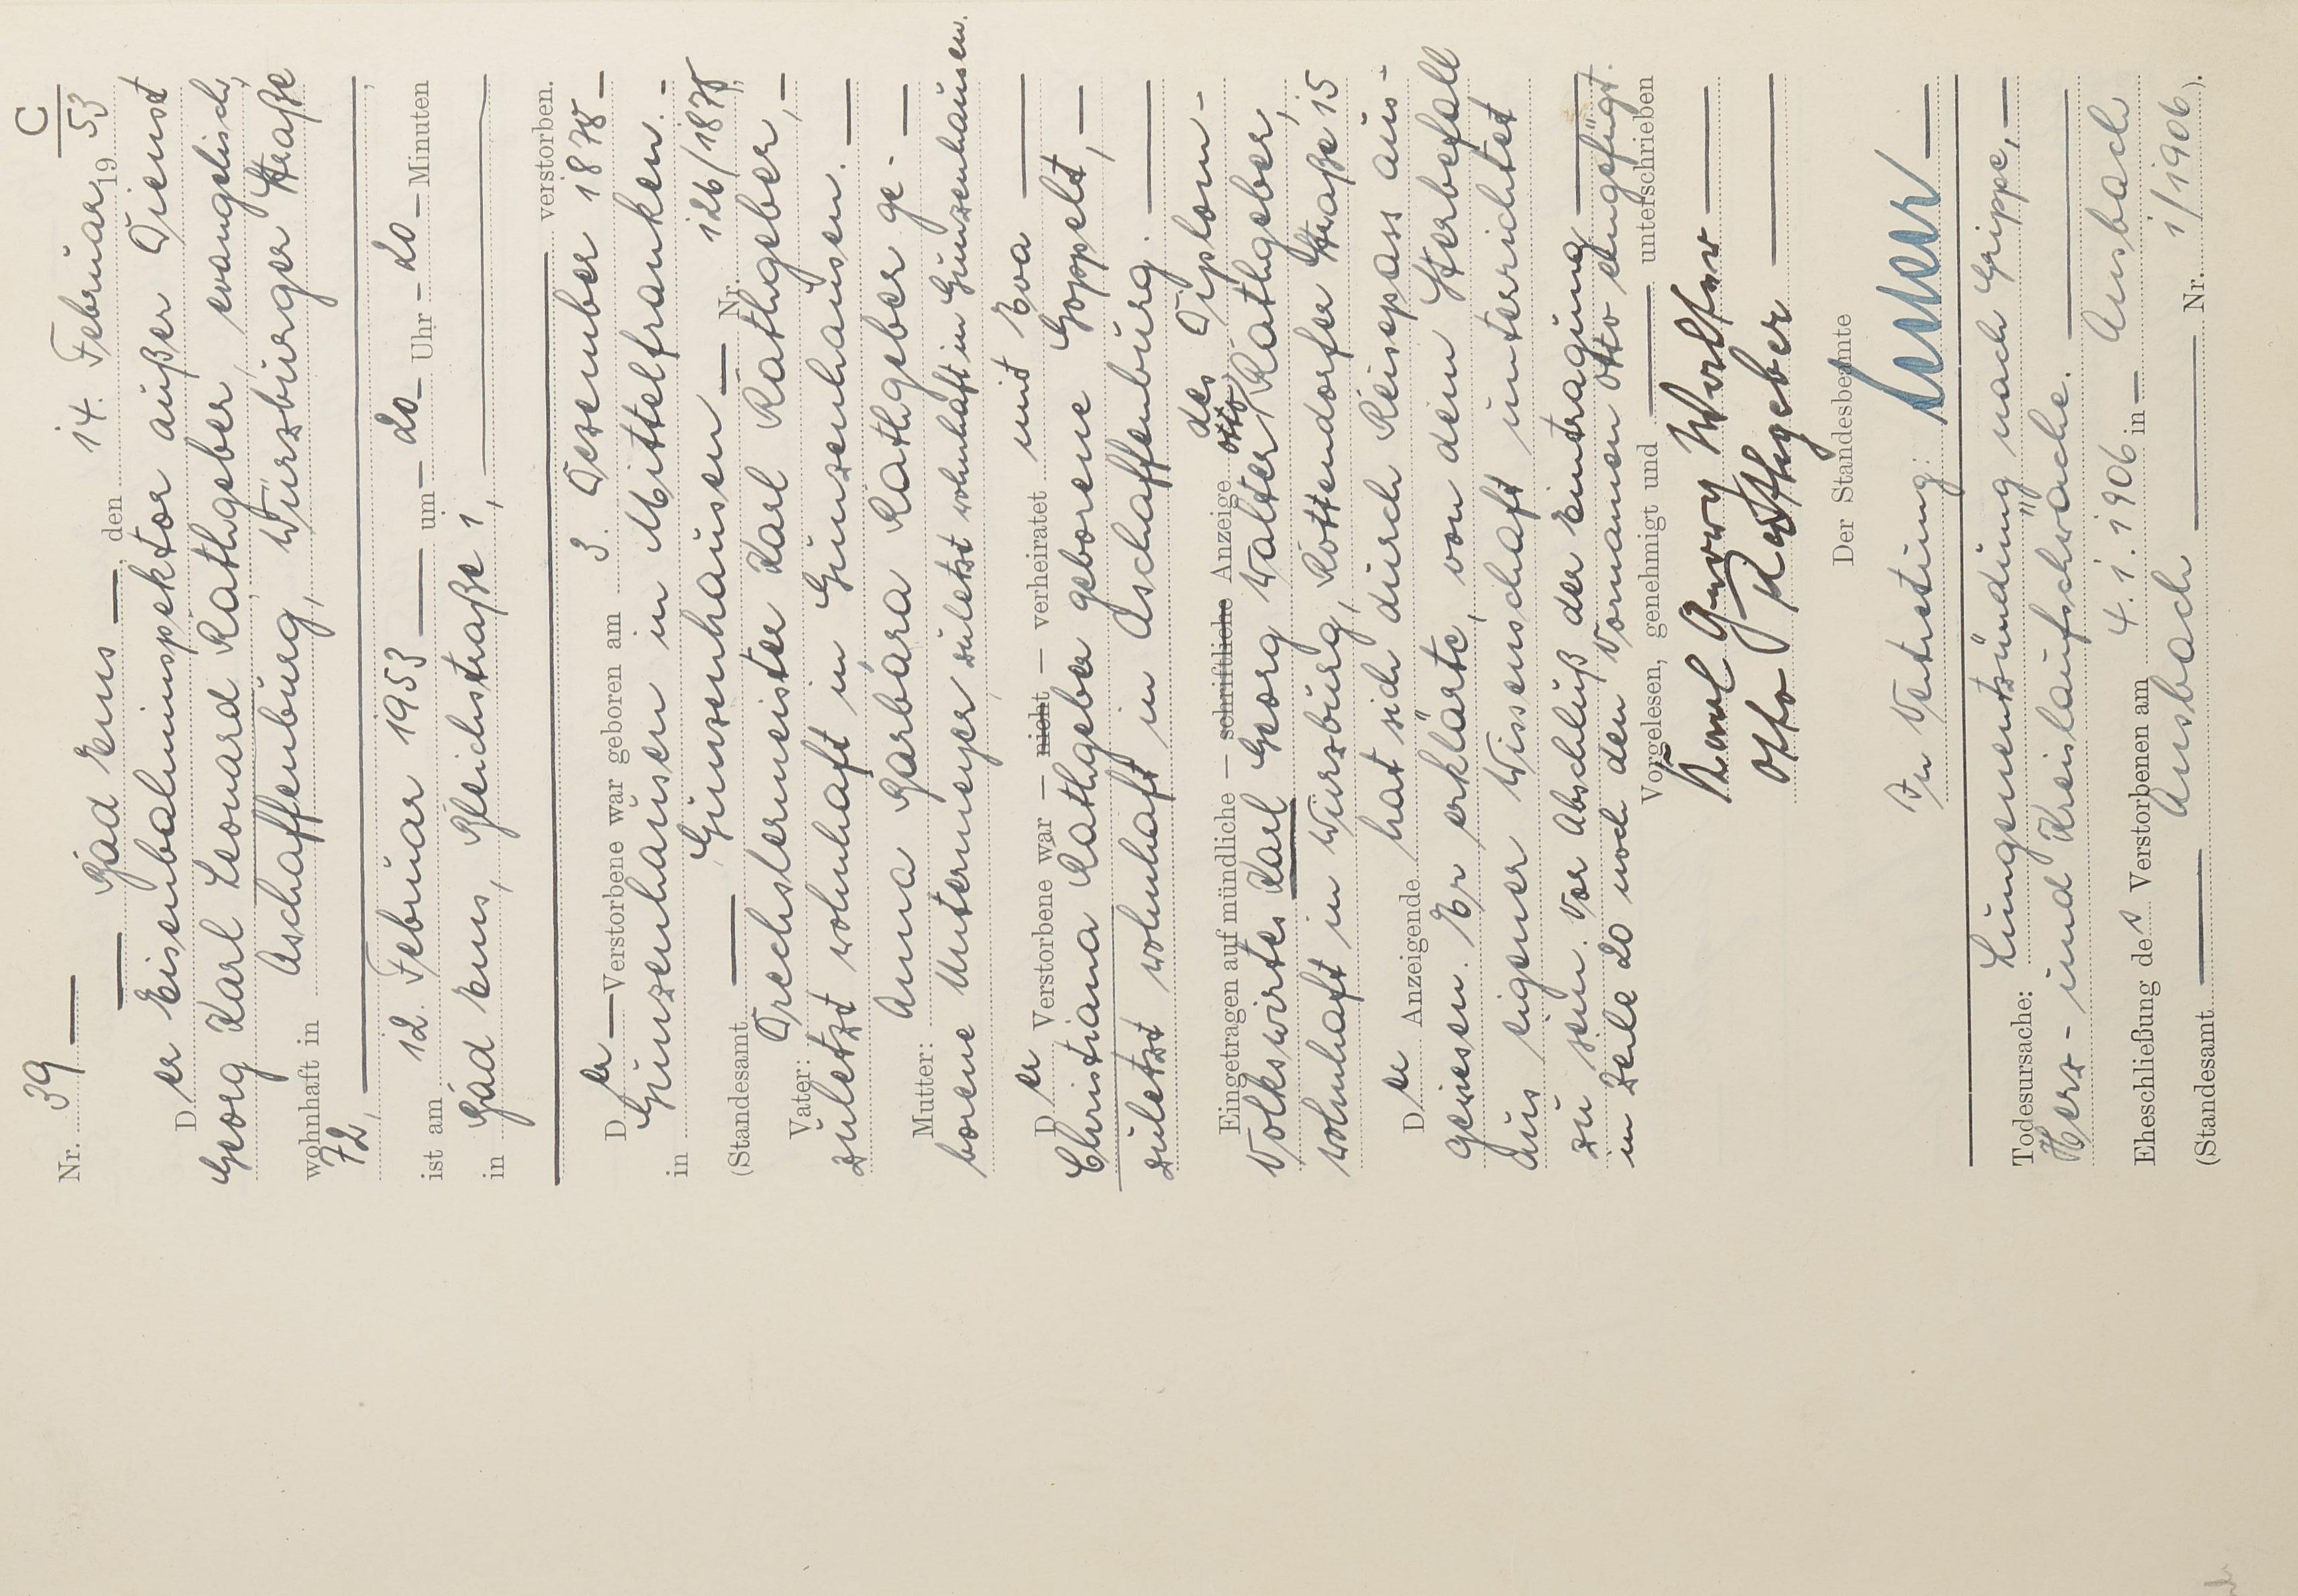 C
Nr. 39
Bad Ems, den 14. Februar 1953
Der Eisenbahninspektor außer Dienst
Georg Karl Leonard Rathgeber, evangelisch,
wohnhaft in Aschaffenburg, Würzburger Straße
72,
ist am 12. Februar 1953 um 20 Uhr 20 Minuten
in Bad Ems, Bleichstraße 1,
verstorben.
Der Verstorbene war geboren am 3. Dezember 1878
in Gunzenhausen in Mittelfranken.
(Standesamt Gunzenhausen Nr. 126/1878)
Vater: Drechslermeister Karl Rathgeber,
zuletzt wohnhaft in Gunzenhausen.
Mutter: Anna Barbara Rathgeber ge-
borene Untermeyer zuletzt wohnhaft in Gunzenhausen.
Der Verstorbene war — nicht — verheiratet mit Eva
Christiana Rathgeber geborene Goppelt,
zuletzt wohnhaft in Aschaffenburg.
Eingetragen auf mündliche — schriftliche Anzeige des Diplom-
Volkswirtes Karl Georg Walter Otto Rathgeber,
wohnhaft in Würzburg, Rottendorfer Straße 15
Der Anzeigende hat sich durch Reisepass aus-
gewiesen. Er erklärte, von dem Sterbefall
aus eigener Wissenschaft unterrichtet
zu sein. Vor Abschluß der Eintragung
in Zeile 20 noch den Vornamen Otto eingefügt.
Vorgelesen, genehmigt und unterschrieben
Karl Georg Walter
Otto Rathgeber
Der Standesbeamte
In Vertretung:
Todesursache: Lungenentzündung nach Grippe,
Herz- und Kreislaufschwäche.
Eheschließung des Verstorbenen am 4.1.1906 in Ansbach
(Standesamt Ansbach Nr. 1/1906).